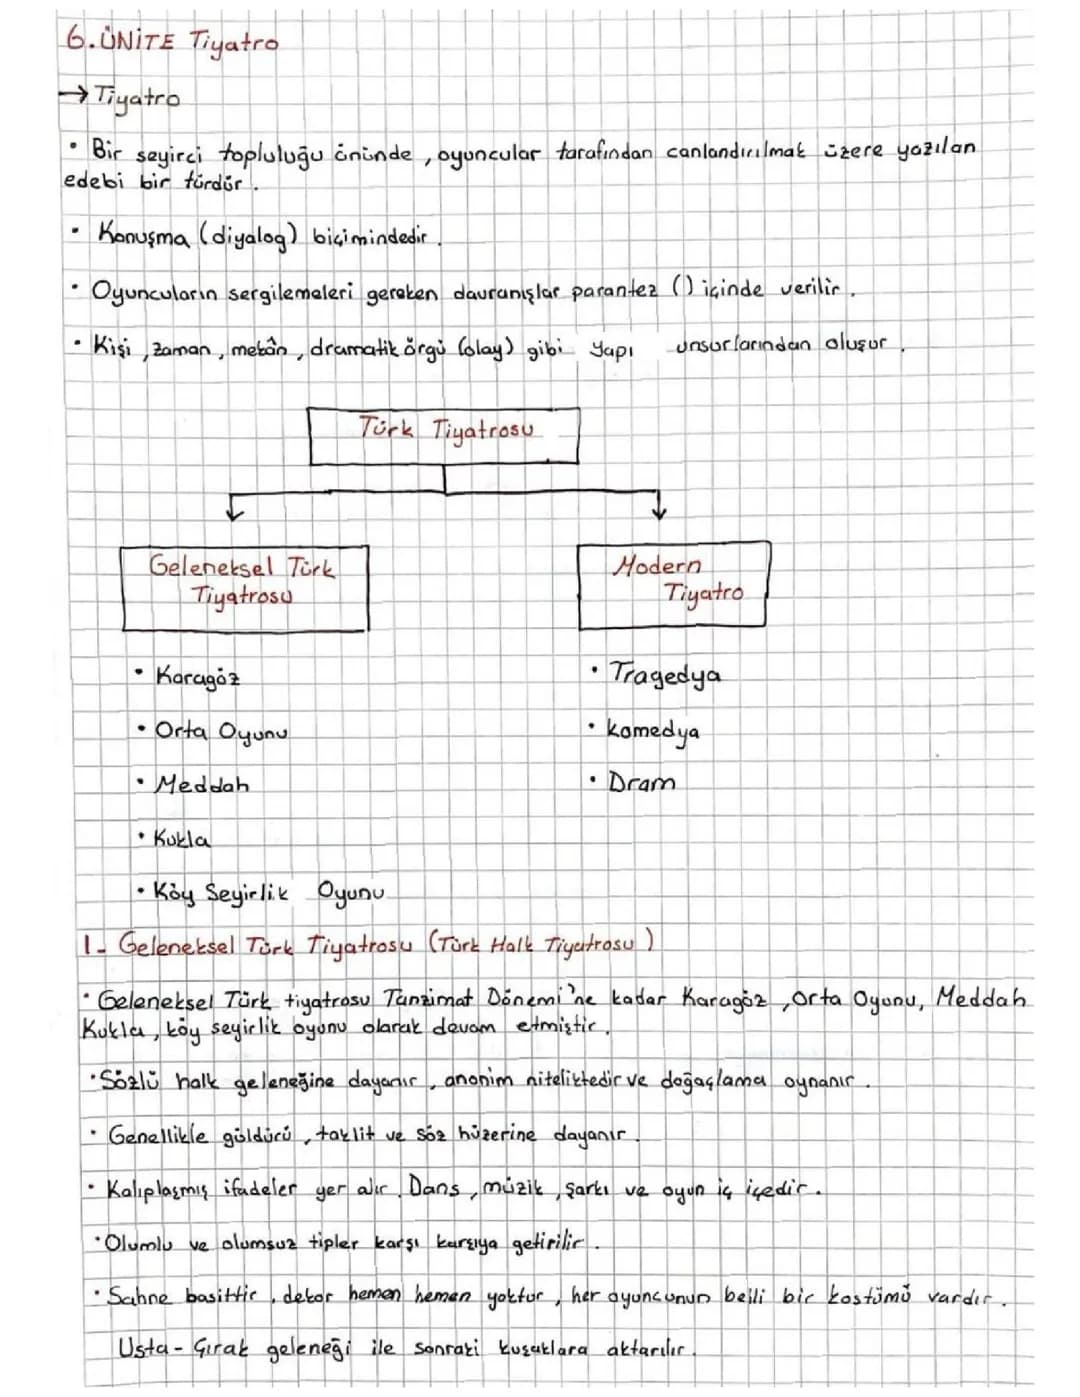 6.ÜNİTE Tiyatro
→ Tiyatro
• Bir seyirci topluluğu önünde, oyuncular tarafından canlandırılmak üzere yazılan
edebi bir türdür.
• Konuşma (diyalog) biçimindedir.
• Oyuncuların sergilemeleri gereken davranışlar parantez () içinde verilir.
• Kişi, zaman, mekân, dramatik örgü (olay) gibi yapı unsurlarından oluşur.
Türk Tiyatrosu
Geleneksel Türk
Tiyatrosu
• Karagöz
• Orta Oyunu
• Meddah
• Kukla
• Köy Seyirlik Oyunu
Modern
Tiyatro
• Tragedya
• Komedya
• Dram
1- Geleneksel Türk Tiyatrosu (Türk Halk Tiyatrosu)
• Geleneksel Türk tiyatrosu Tanzimat Dönemi'ne kadar Karagöz, Orta Oyunu, Meddah
Kukla, köy seyirlik oyunu olarak devam etmiştir.
• Sözlü halk geleneğine dayanır, anonim niteliktedir ve doğaçlama oynanır.
• Genellikle güldürü, taklit ve söz hüzerine dayanır.
• Kalıplaşmış ifadeler yer alır. Dans, müzik, şarkı ve oyun iç içedir.
• Olumlu ve olumsuz tipler karşı karşıya getirilir.
• Sahne basittir, dekor hemen hemen yoktur, her oyuncunun belli bir kostümü vardır.
Usta-Çırak geleneği ile sonraki kuşaklara aktarılır.